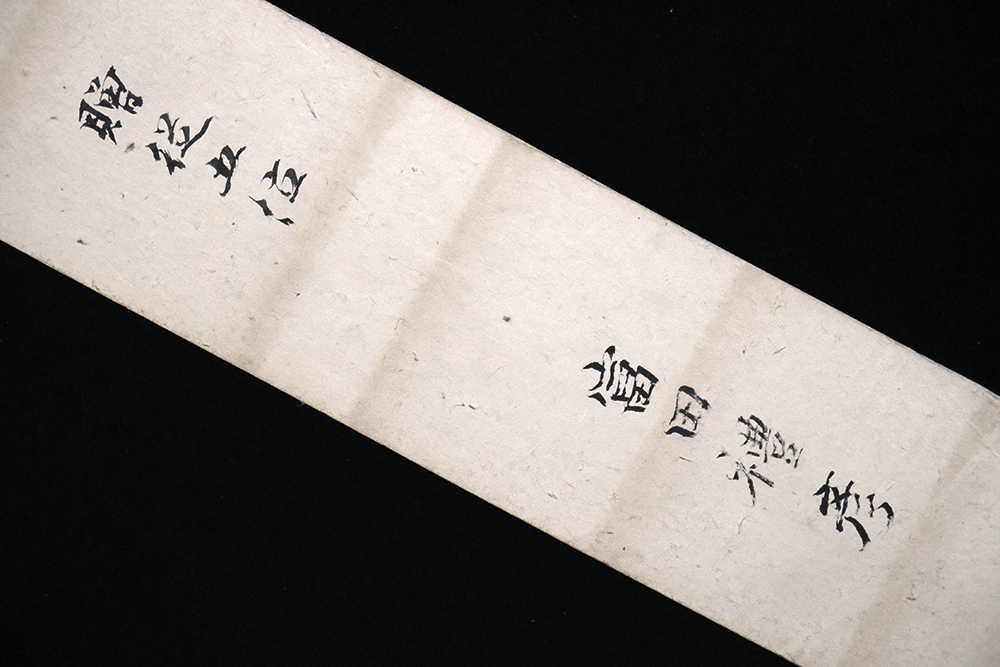 贈従五位
冨田禮彦